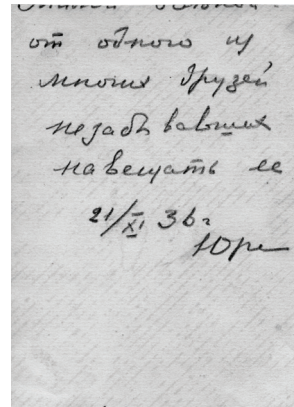 от одного из
многих друзей
незабывавших
навещать ее
21/XI 36г
Юре